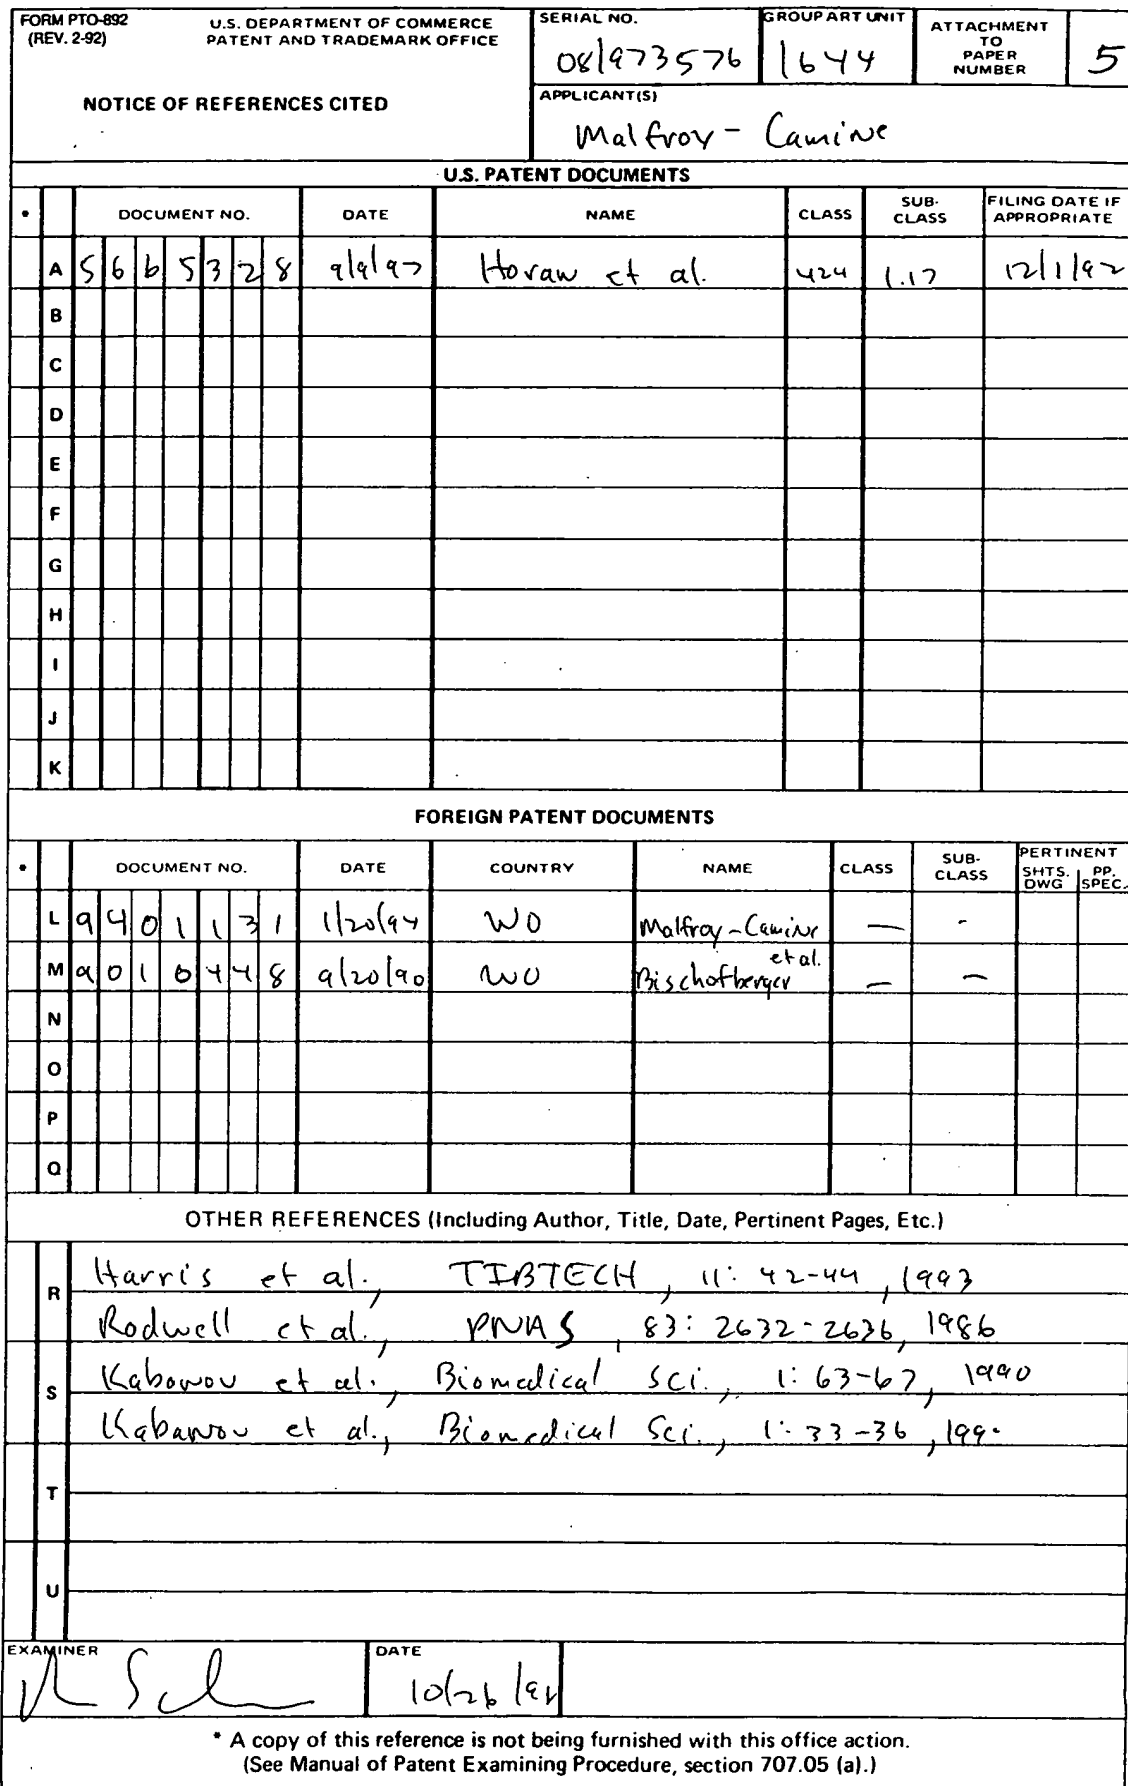 FORM PTO-892
(REV. 2-92)
U.S. DEPARTMENT OF COMMERCE
PATENT AND TRADEMARK OFFICE
NOTICE OF REFERENCES CITED
SERIAL NO.
08/973576
GROUP ART UNIT
1644
ATTACHMENT
TO
PAPER
NUMBER
5
APPLICANT(S)
Malfroy - Camine
U.S. PATENT DOCUMENTS
* DOCUMENT NO. DATE NAME CLASS SUB-CLASS FILING DATE IF APPROPRIATE
A 5665328 9/9/97 Horan et al. 424 1.17 12/1/92
B
C
D
E
F
G
H
I
J
K
FOREIGN PATENT DOCUMENTS
* DOCUMENT NO. DATE COUNTRY NAME CLASS SUB-CLASS PERTINENT SHTS. DWG PP. SPEC.
L 9401131 1/20/94 WO Malfroy-Camine et al. — -
M 9010448 9/20/90 WO Bischofberger — —
N
O
P
Q
OTHER REFERENCES (Including Author, Title, Date, Pertinent Pages, Etc.)
R Harris et al., TIBTECH, 11: 42-44, 1993
Rodwell et al., PNAS, 83: 2632-2636, 1986
S Kabonov et al., Biomedical Sci., 1: 63-67, 1990
Kabanov et al., Biomedical Sci., 1: 33-36,
T
U
EXAMINER
DATE
10/26/98
* A copy of this reference is not being furnished with this office action.
(See Manual of Patent Examining Procedure, section 707.05 (a).)